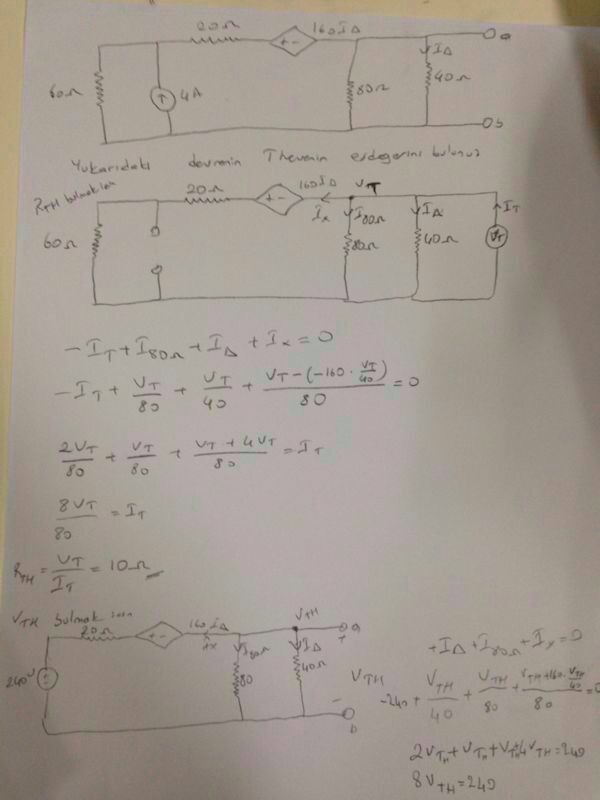 20Ω 160IΔ
+ -
a
60Ω 4A 80Ω IΔ 40Ω
b
Yukarıdaki devrenin Thevenin eşdeğerini bulunuz
RTH bulmak için
20Ω 160IΔ VT
+ -
Ix I80Ω IΔ IT
60Ω 80Ω 40Ω VT
-IT + I80Ω + IΔ + Ix = 0
-IT + VT/80 + VT/40 + (VT-(-160·VT/40))/80 = 0
2VT/80 + VT/80 + (VT+4VT)/80 = IT
8VT/80 = IT
RTH = VT/IT = 10Ω
VTH bulmak için
20Ω 160IΔ VTH a
+ - +
Ix I80Ω IΔ
240V 80 40Ω VTH
-
b
+IΔ+I80Ω+Ix=0
-240 + VTH/40 + VTH/80 + (VTH+160·VTH/40)/80 = 0
2VTH+VTH+VTH+4VTH=240
8VTH=240